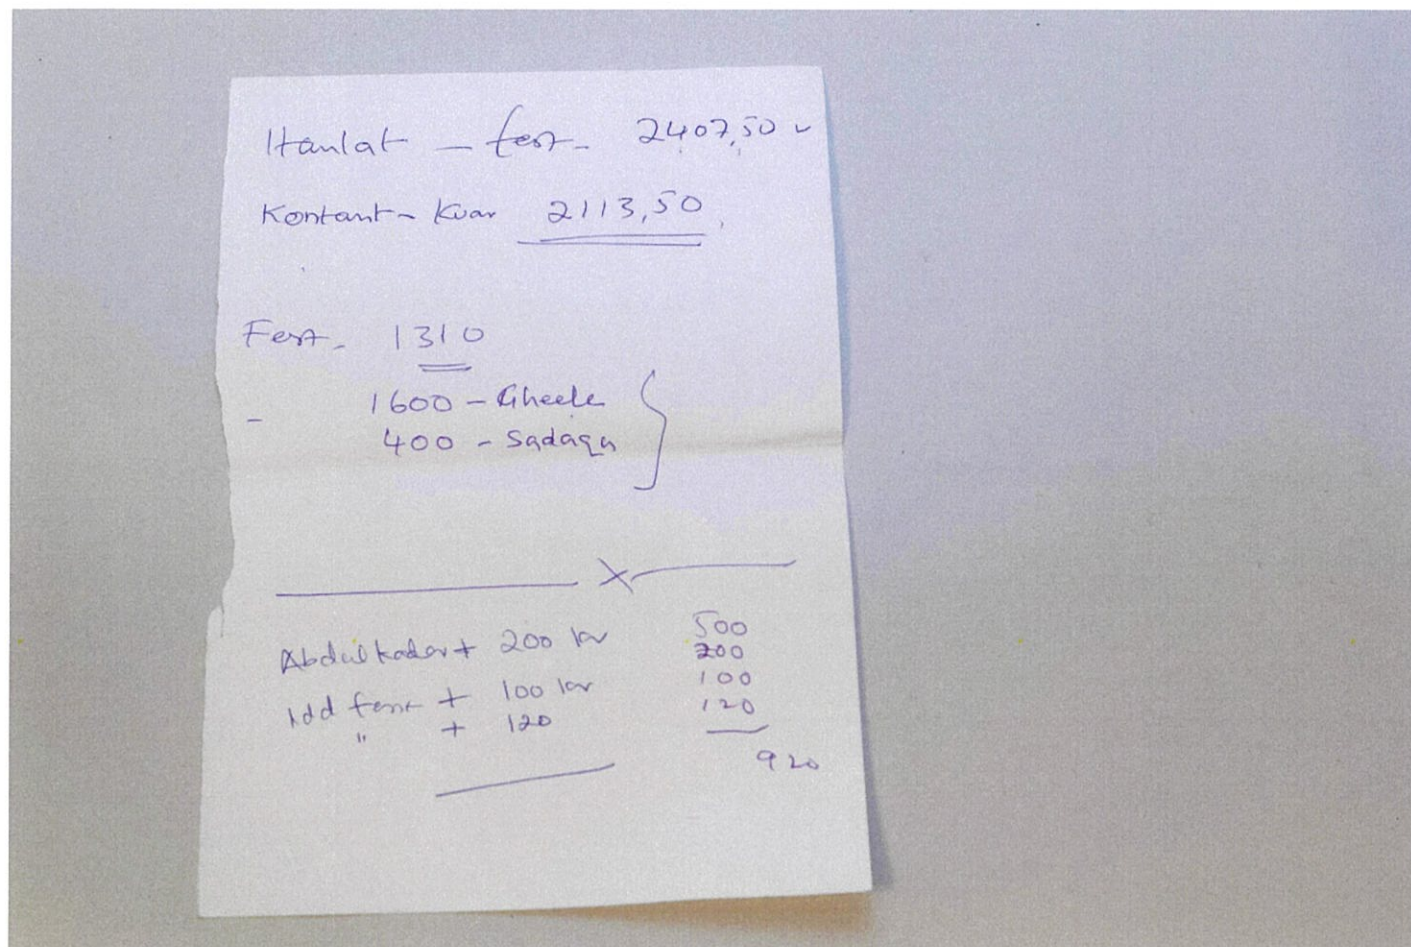 Handlat - fest- 2407,50
Kontant - kvar 2113,50
Fest - 1310
- 1600 - Gheele
400 - Sadaqa
X
Abdulkadar + 200 kr 500
200
Idd fest + 100 kr 100
" + 120 120
920